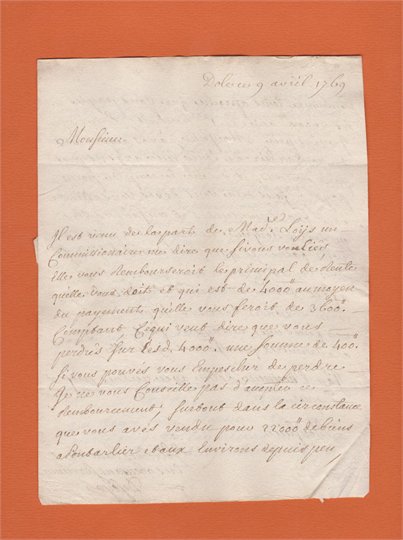 9 avril 1769
Monsieur
Il est venu de la part de Mad.e Loÿs un
Commissionaire me dire que si vous vouliés
elle vous Rembourseroit le principal de Rente
quelle vous doit et qui est de 4000tt au moyen
du payement quelle vous feroit de 3600tt
Comptant Ce qui veut dire que vous
perdrés sur lesd. 4000tt une somme de 400tt
si vous pouvés vous Empescher de perdre
Je ne vous Conseille pas d'accepter ce
Remboursement; surtout dans la circonstance
que vous avés vendu pour 22000tt de biens
a et aux Environs depuis peu